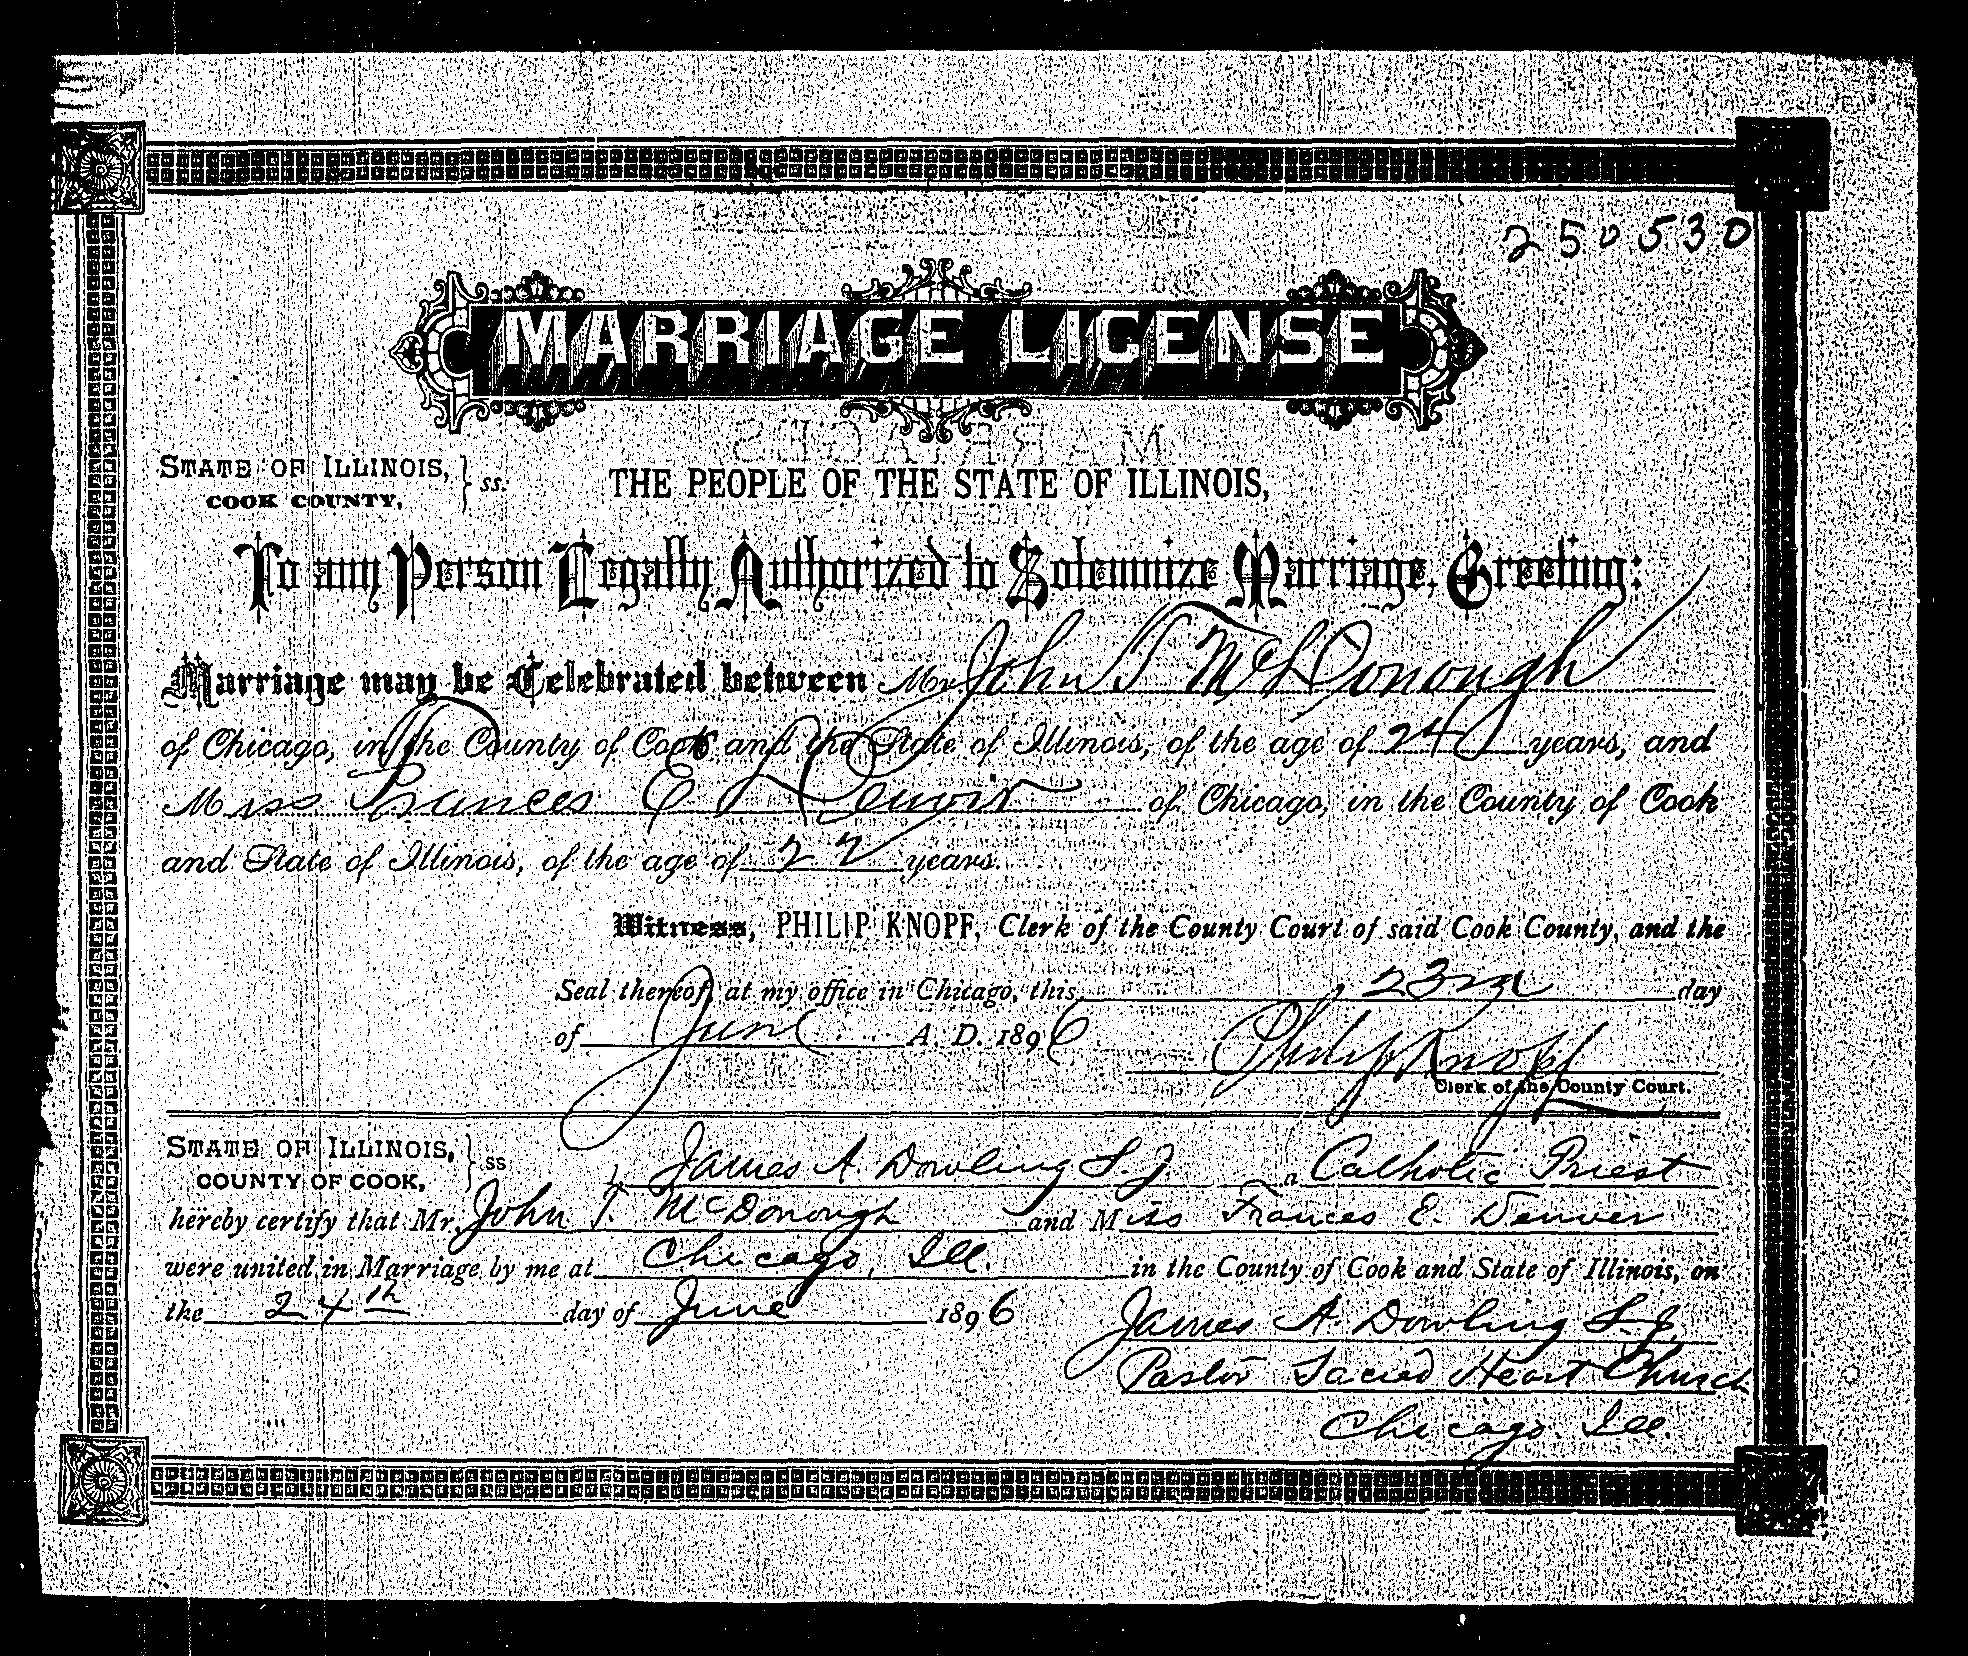 250530
MARRIAGE LICENSE
STATE OF ILLINOIS, } ss.
COOK COUNTY,
THE PEOPLE OF THE STATE OF ILLINOIS,
To any Person Legally Authorized to Solemnize Marriage, Greeting:
Marriage may be Celebrated between Mr John T McDonough
of Chicago, in the County of Cook and the State of Illinois, of the age of 24 years, and
Miss Frances E Denvir of Chicago, in the County of Cook
and State of Illinois, of the age of 22 years.
Witness, PHILIP KNOPF, Clerk of the County Court of said Cook County, and the
Seal thereof, at my office in Chicago, this 23rd day
of June A. D. 1896
Philip Knopf
Clerk of the County Court.
STATE OF ILLINOIS, } ss
COUNTY OF COOK,
I, James A. Dowling S.J. a Catholic Priest
hereby certify that Mr. John T. McDonough and Miss Frances E. Denver
were united in Marriage by me at Chicago, Ill. in the County of Cook and State of Illinois, on
the 24th day of June 1896
James A. Dowling S.J.
Pastor Sacred Heart Church
Chicago. Ill.